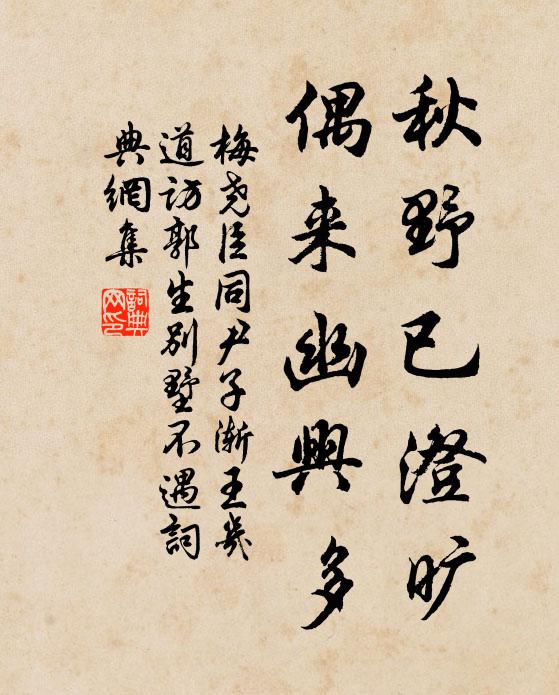 秋野已澄旷
偶来幽興多
梅尧臣同尹子渐王幾
道访郭生别墅不遇詞
典網集
詞典
网印